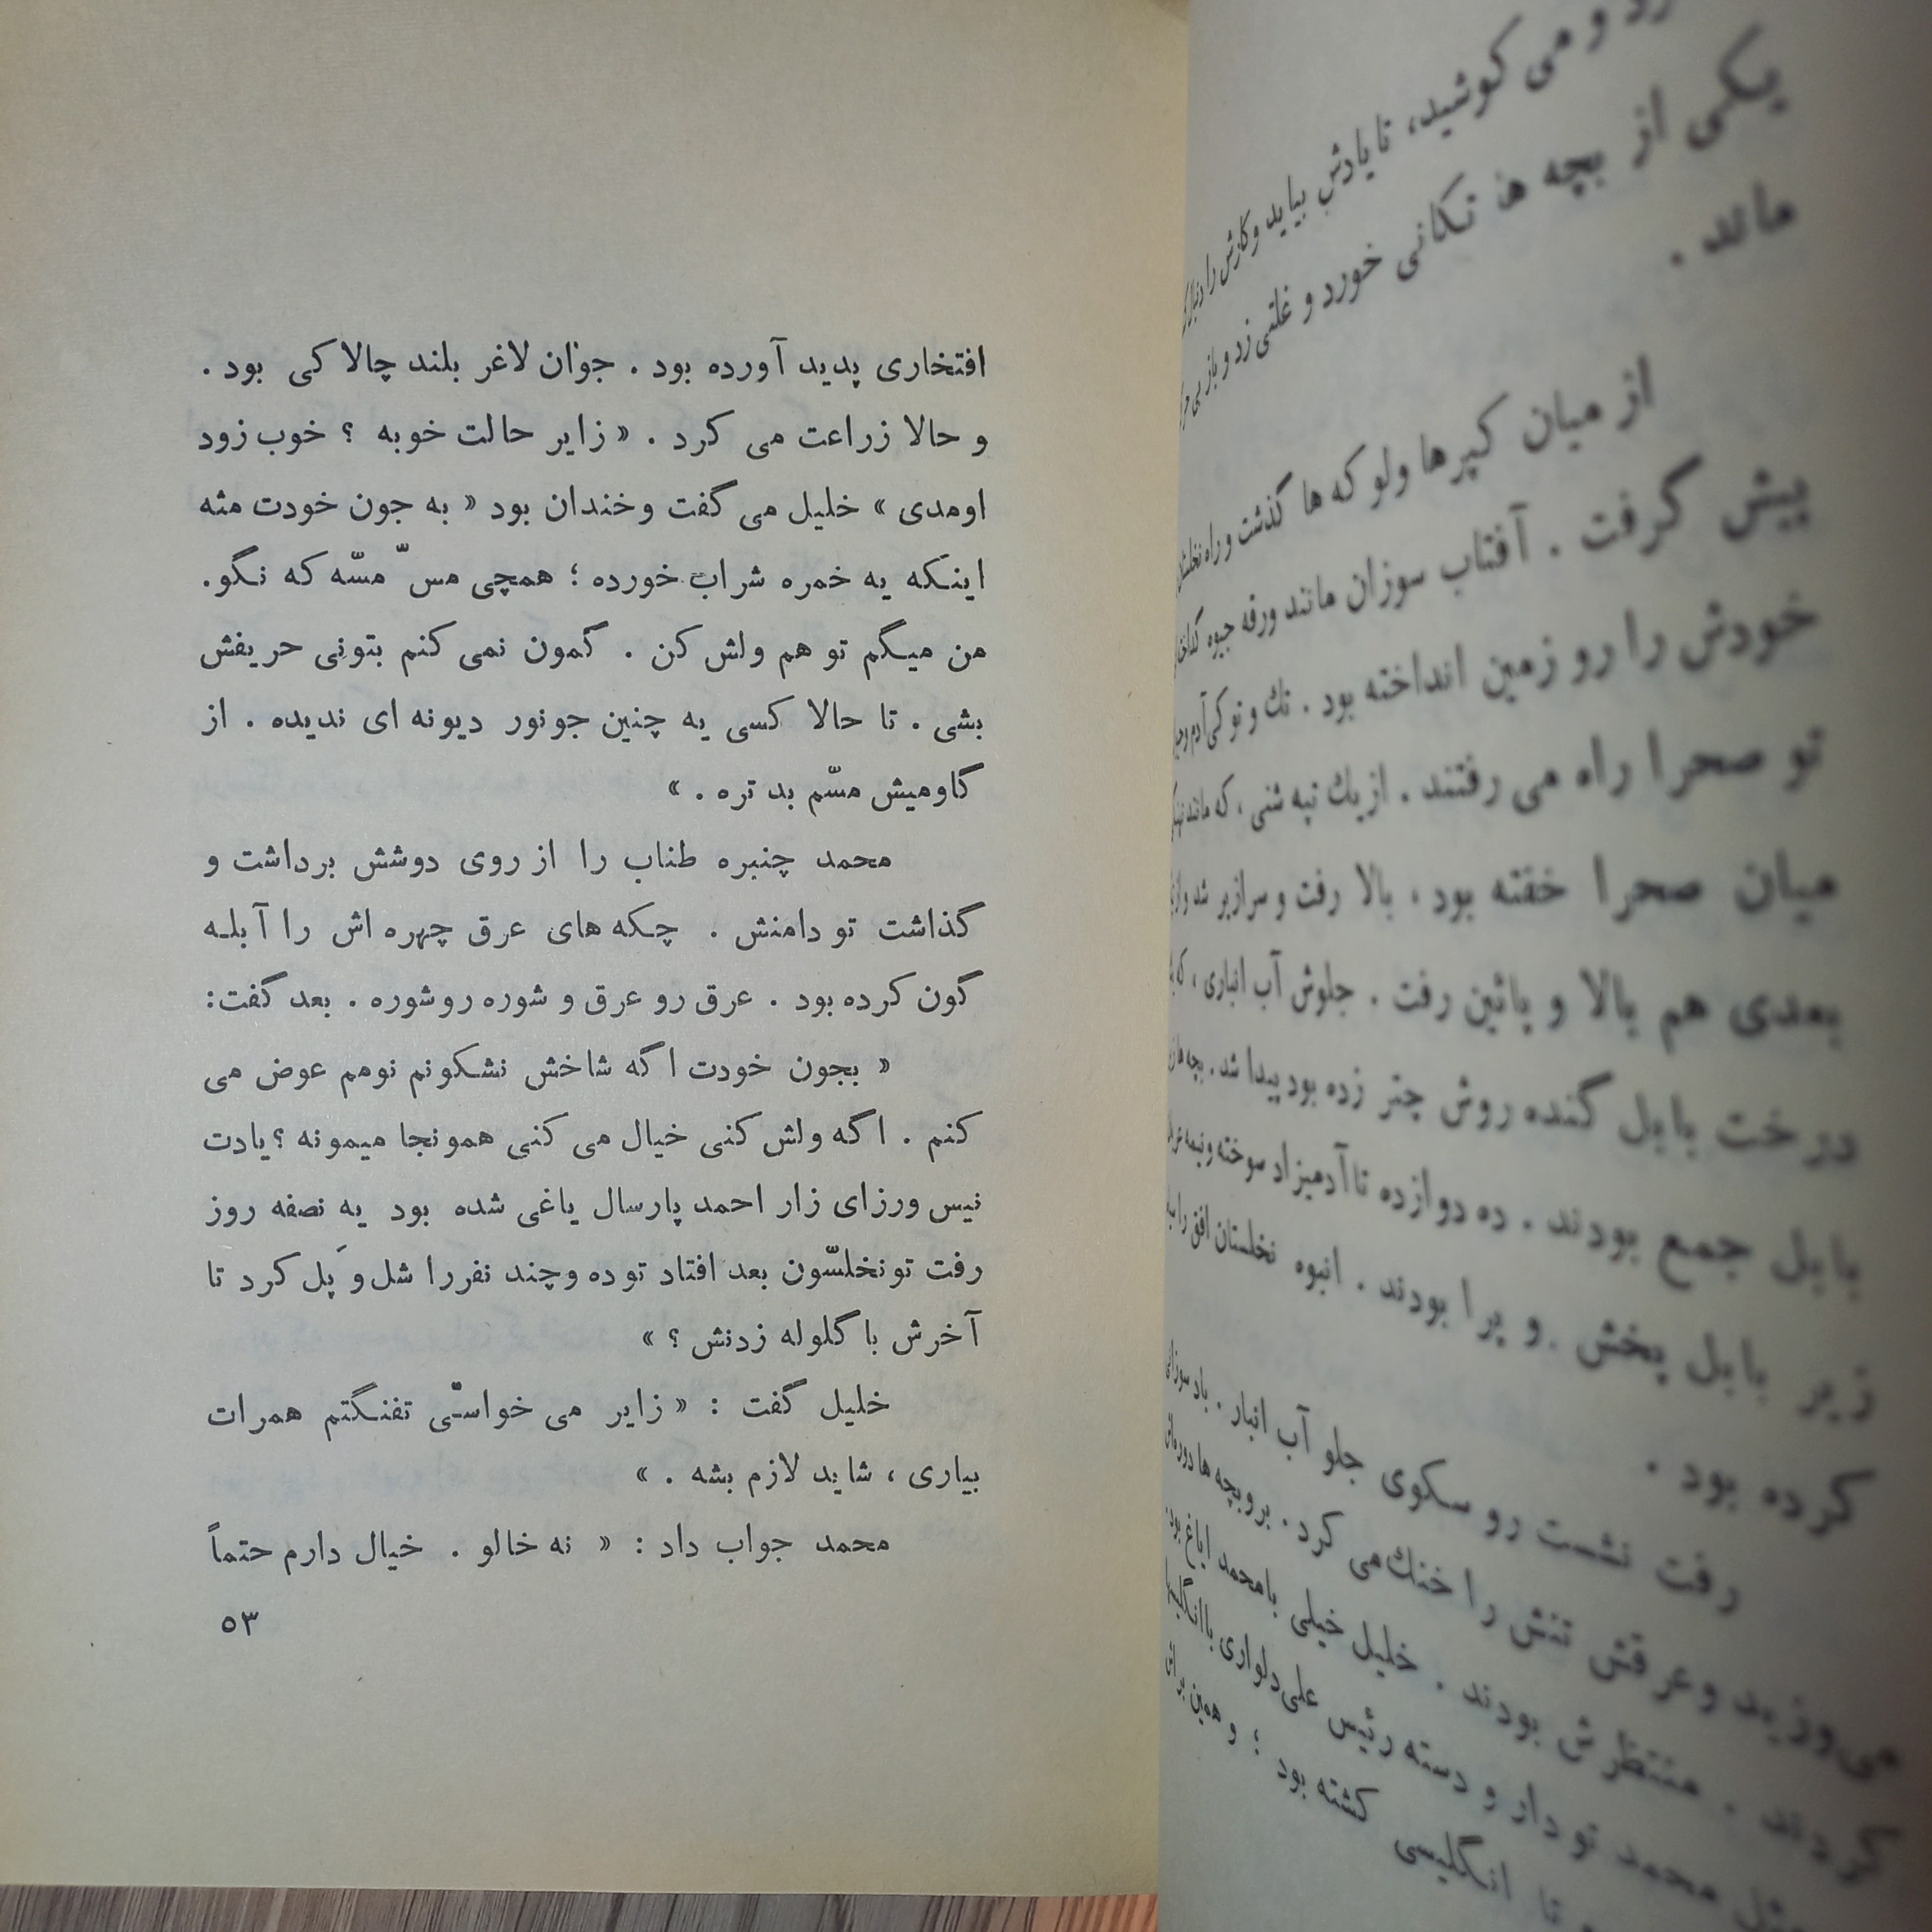 زد و می کوشید، تا یادش بیاید و کارش را
یکی از بچه ها تکانی خورد و غلتی زد و باز بی
ماند .
از میان کپرها ولوکه ها گذشت و راه
پیش گرفت . آفتاب سوزان مانند ورقه جیوه
خودش را رو زمین انداخته بود . تك و توکی آدم
تو صحرا راه می رفتند . از یك تپه شنی ، که مانند
میان صحرا خفته بود ، بالا رفت و سرازیر شد و
بعدی هم بالا و پائین رفت . جلوش آب انباری ، که
درخت بابل گنده روش چتر زده بود پیدا شد . بچه ها
بابل جمع بودند . ده دوازده تا آدمیزاد سوخته ونیمه
زیر بابل پخش . و پرا بودند . انبوه نخلستان افق را
کرده بود .
رفت نشست رو سکوی جلو آب انبار . باد سوزانی
می وزید و عرقش تنش را خنك می کرد . بروبچه ها
کردند . منتظرش بودند . خلیل خیلی بامحمد ایاغ بود.
مثل محمد تو دار و دسته رئیس علی دلواری با
تا انگلیسی کشته بود ؛ و همین
افتخاری پدید آورده بود . جوان لاغر بلند چالاکی بود .
و حالا زراعت می کرد . « زایر حالت خوبه ؟ خوب زود
اومدی » خلیل می گفت وخندان بود « به جون خودت مثه
اینکه یه خمره شراب خورده ؛ همچی مسّ مسّه که نگو.
من میگم تو هم ولش کن . گمون نمی کنم بتونی حریفش
بشی . تا حالا کسی یه چنین جونور دیونه ای ندیده . از
گاومیش مسّم بد تره . »
محمد چنبره طناب را از روی دوشش برداشت و
گذاشت تو دامنش . چکه های عرق چهره اش را آبله
گون کرده بود . عرق رو عرق و شوره روشوره . بعد گفت:
« بجون خودت اگه شاخش نشکونم نومم عوض می
کنم . اگه ولش کنی خیال می کنی همونجا میمونه ؟ یادت
نیس ورزای زار احمد پارسال یاغی شده بود یه نصفه روز
رفت تو نخلسّون بعد افتاد توده وچند نفررا شل وَ پل کرد تا
آخرش با گلوله زدنش ؟ »
خلیل گفت : « زایر می خواسّی تفنگتم همرات
بیاری ، شاید لازم بشه . »
محمد جواب داد : « نه خالو . خیال دارم حتماً
۵۳